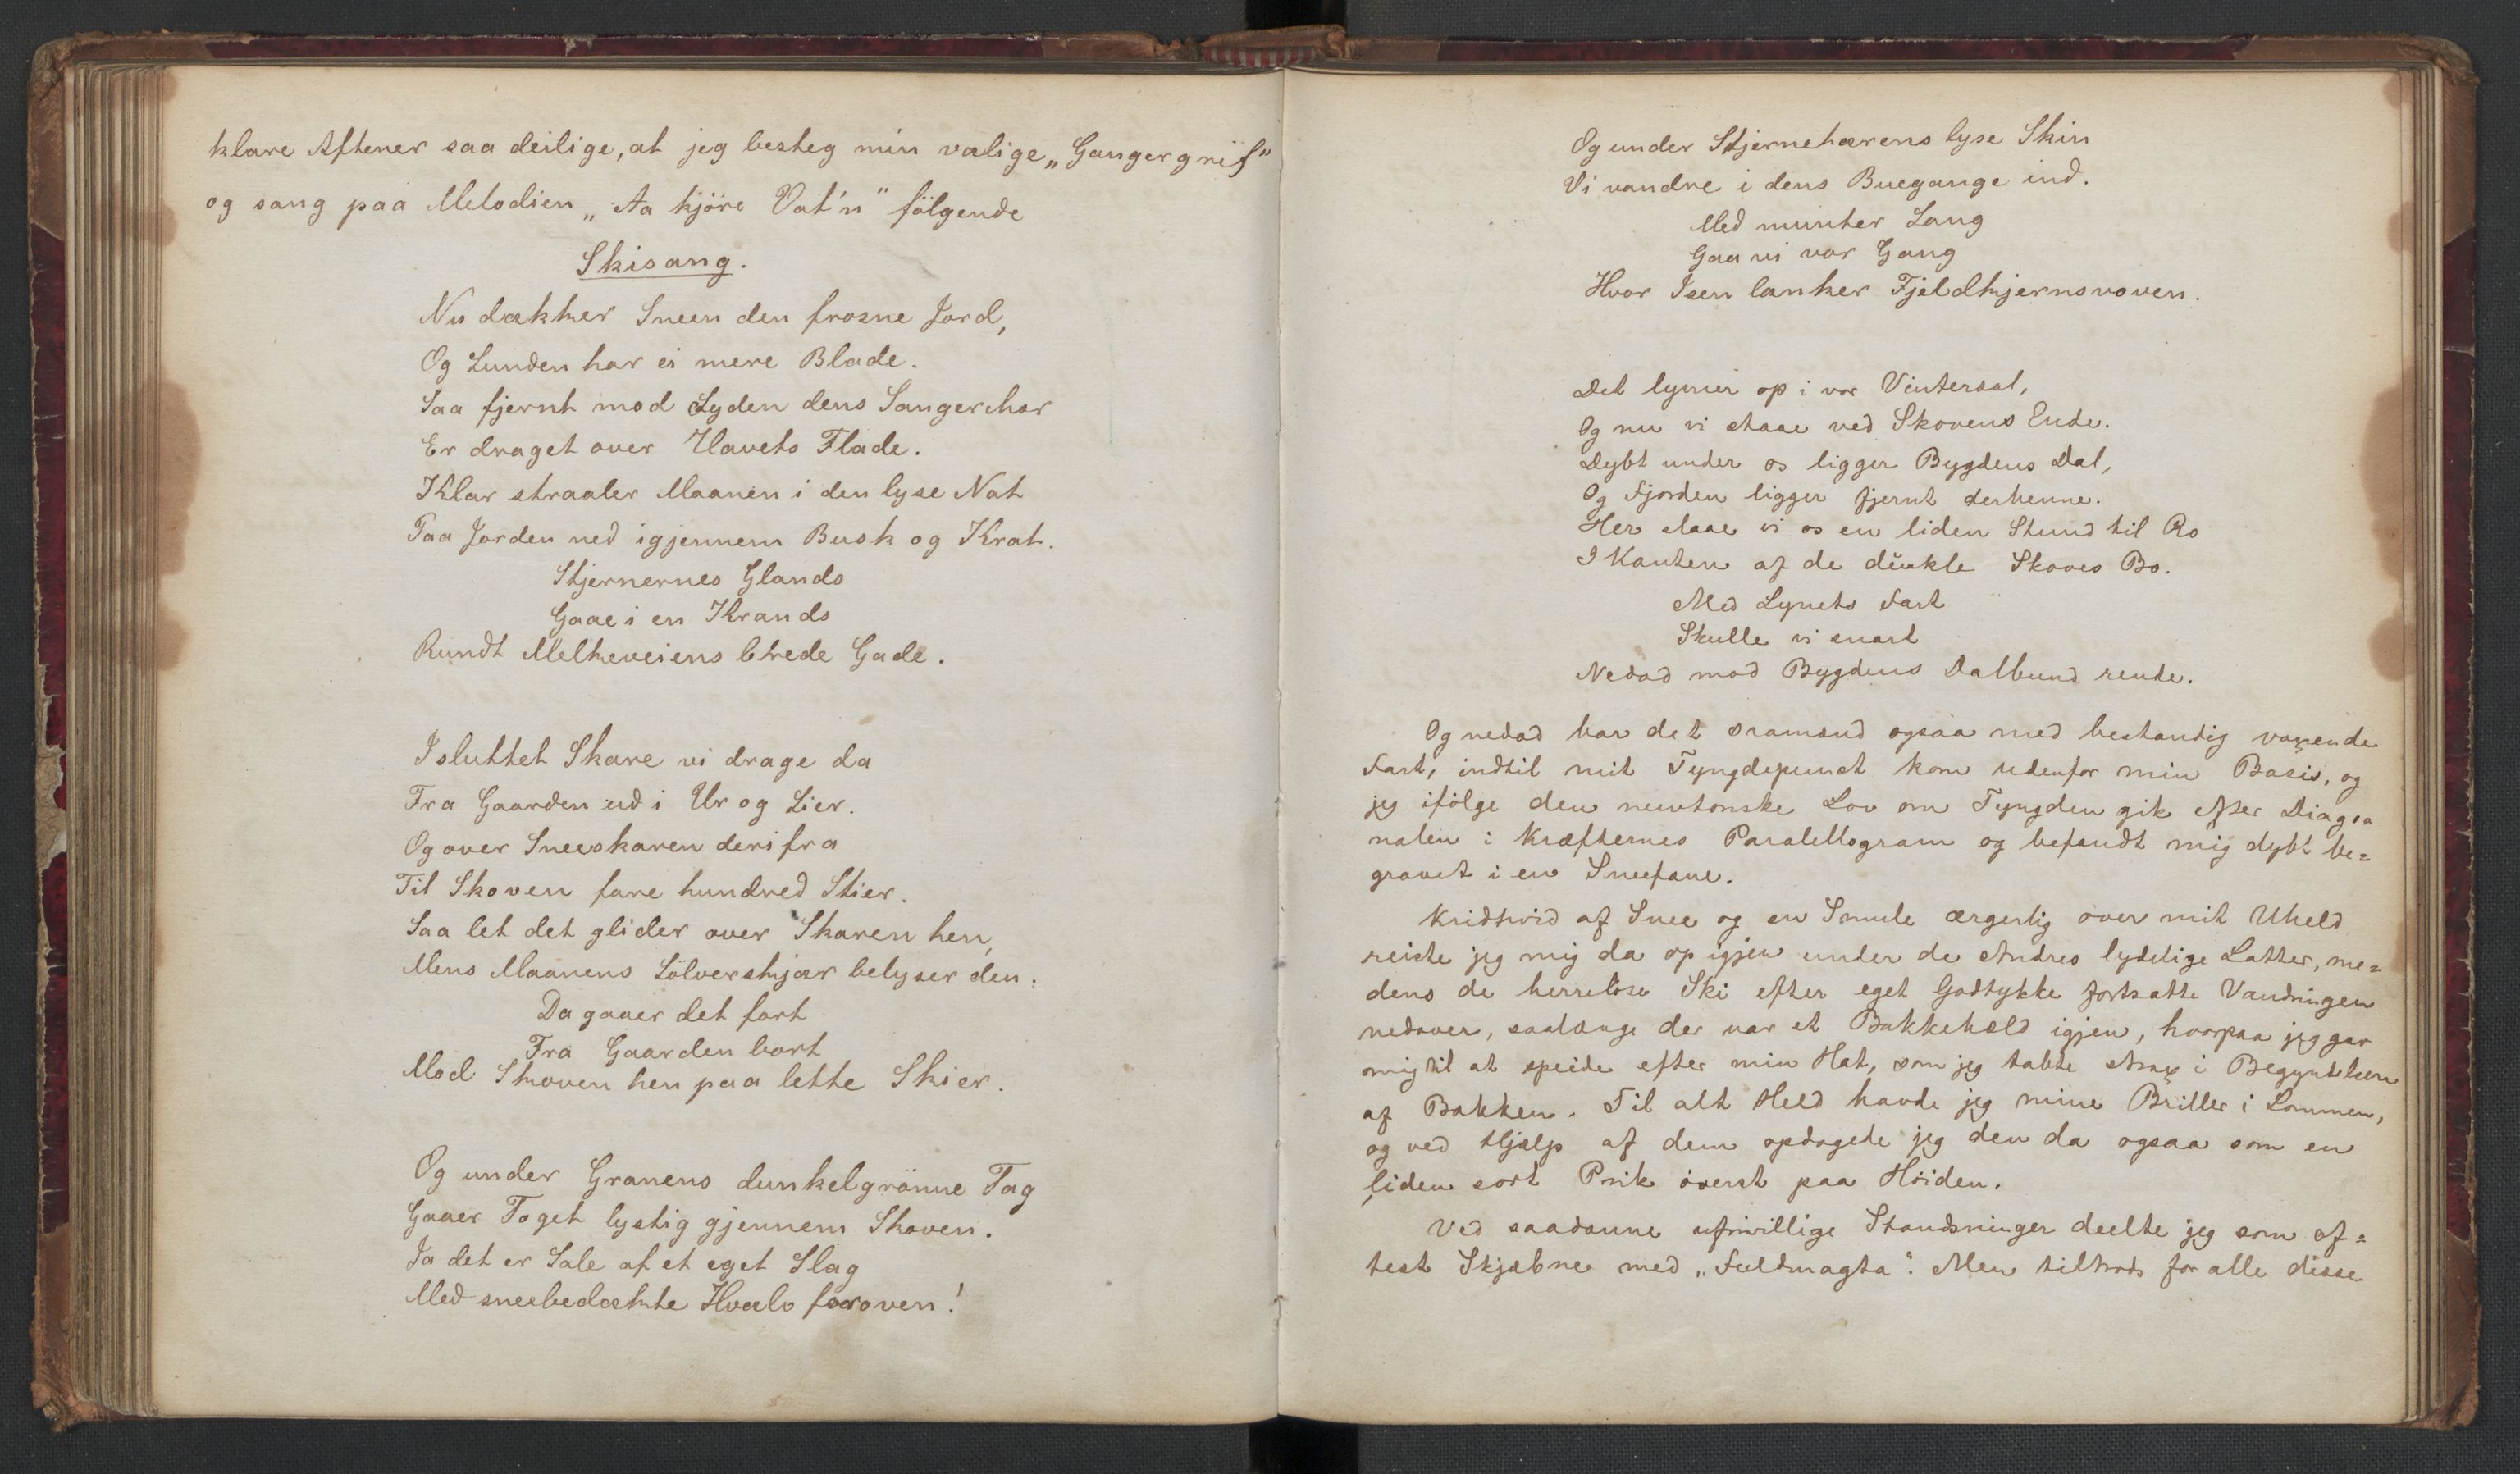 klare Aftener saa deilige, at jeg besteg min vælige „Gangergrif"
og sang paa Melodien „Aa kjöre Vat'n" fölgende
Skisang.
Nu dækker Sneen den frosne Jord,
Og Lunden har ei mere Blade.
Saa fjernt mod Syden dens Sangerchor
Er draget over Havets Flade.
Klar straaler Maanen i den lyse Nat
Paa Jorden ned igjennem Busk og Krat.
Stjernernes Glands
Gaae i en Krands
Rundt Melkeveiens brede Gade.
I sluttet Skare vi drage da
Fra Gaarden ud i Ur og Lier.
Og over Sneeskaren derifra
Til Skoven fare hundred Stier.
Saa let det glider over Skaren hen,
Mens Maanens Sölverskjær belyser den.
Da gaaer det fort
Fra Gaarden bort
Mod Skoven hen paa lette Skier.
Og under Granens dunkelgrönne Tag
Gaaer Toget lystig gjennem Skoven.
Ja det er Sale af et eget Slag
Med sneebedækte Hvælv foroven!
Og under Stjernehærens lyse Skin
Vi vandre i dens Buegange ind.
Med munter Sang
Gaa vi vor Gang
Hvor Isen lænker Fjeldtjernsvoven.
Det lysner op i vor Vintersal,
Og nu vi staae ved Skovens Ende.
Dybt under os ligger Bygdens Dal,
Og Fjorden ligger fjernt derhenne.
Her slaae vi os en liden Stund til Ro
I Kanten af de dunkle Skoves Bo.
Med Lynets Fart
Skulle vi snart
Nedad mod Bygdens Dalbund rende.
Og nedad bar det sramænd ogsaa med bestandig voxende
Fart, indtil mit Tyngdepunct kom udenfor min Basis, og
jeg ifölge den newtonske Lov om Tyngden gik efter Diago
nalen i Kræfternes Paralellogram og befandt mig dybt be=
gravet i en Sneefane.
Kridhvid af Snee og en Smule ærgerlig over mit Uheld
reiste jeg mig da op igjen under de Andres lydelige Latter, me=
dens de herrelöse Ski efter eget Godtykke fortsatte Vandringen
nedover, saalænge der var et Bakkehæld igjen, hvorpaa jeg gav
mig til at speide efter min Hat, som jeg tabte strax i Begyndelsen
af Bakken. Til alt Held havde jeg mine Briller i Lommen,
og ved Hjælp af dem opdagede jeg den da ogsaa som en
liden sort Prik överst paa Höiden.
Ved saadanne ufrivillige Standsninger deelte jeg som of=
test Skjæbne med „Fuldmagta". Men tiltrods for alle disse